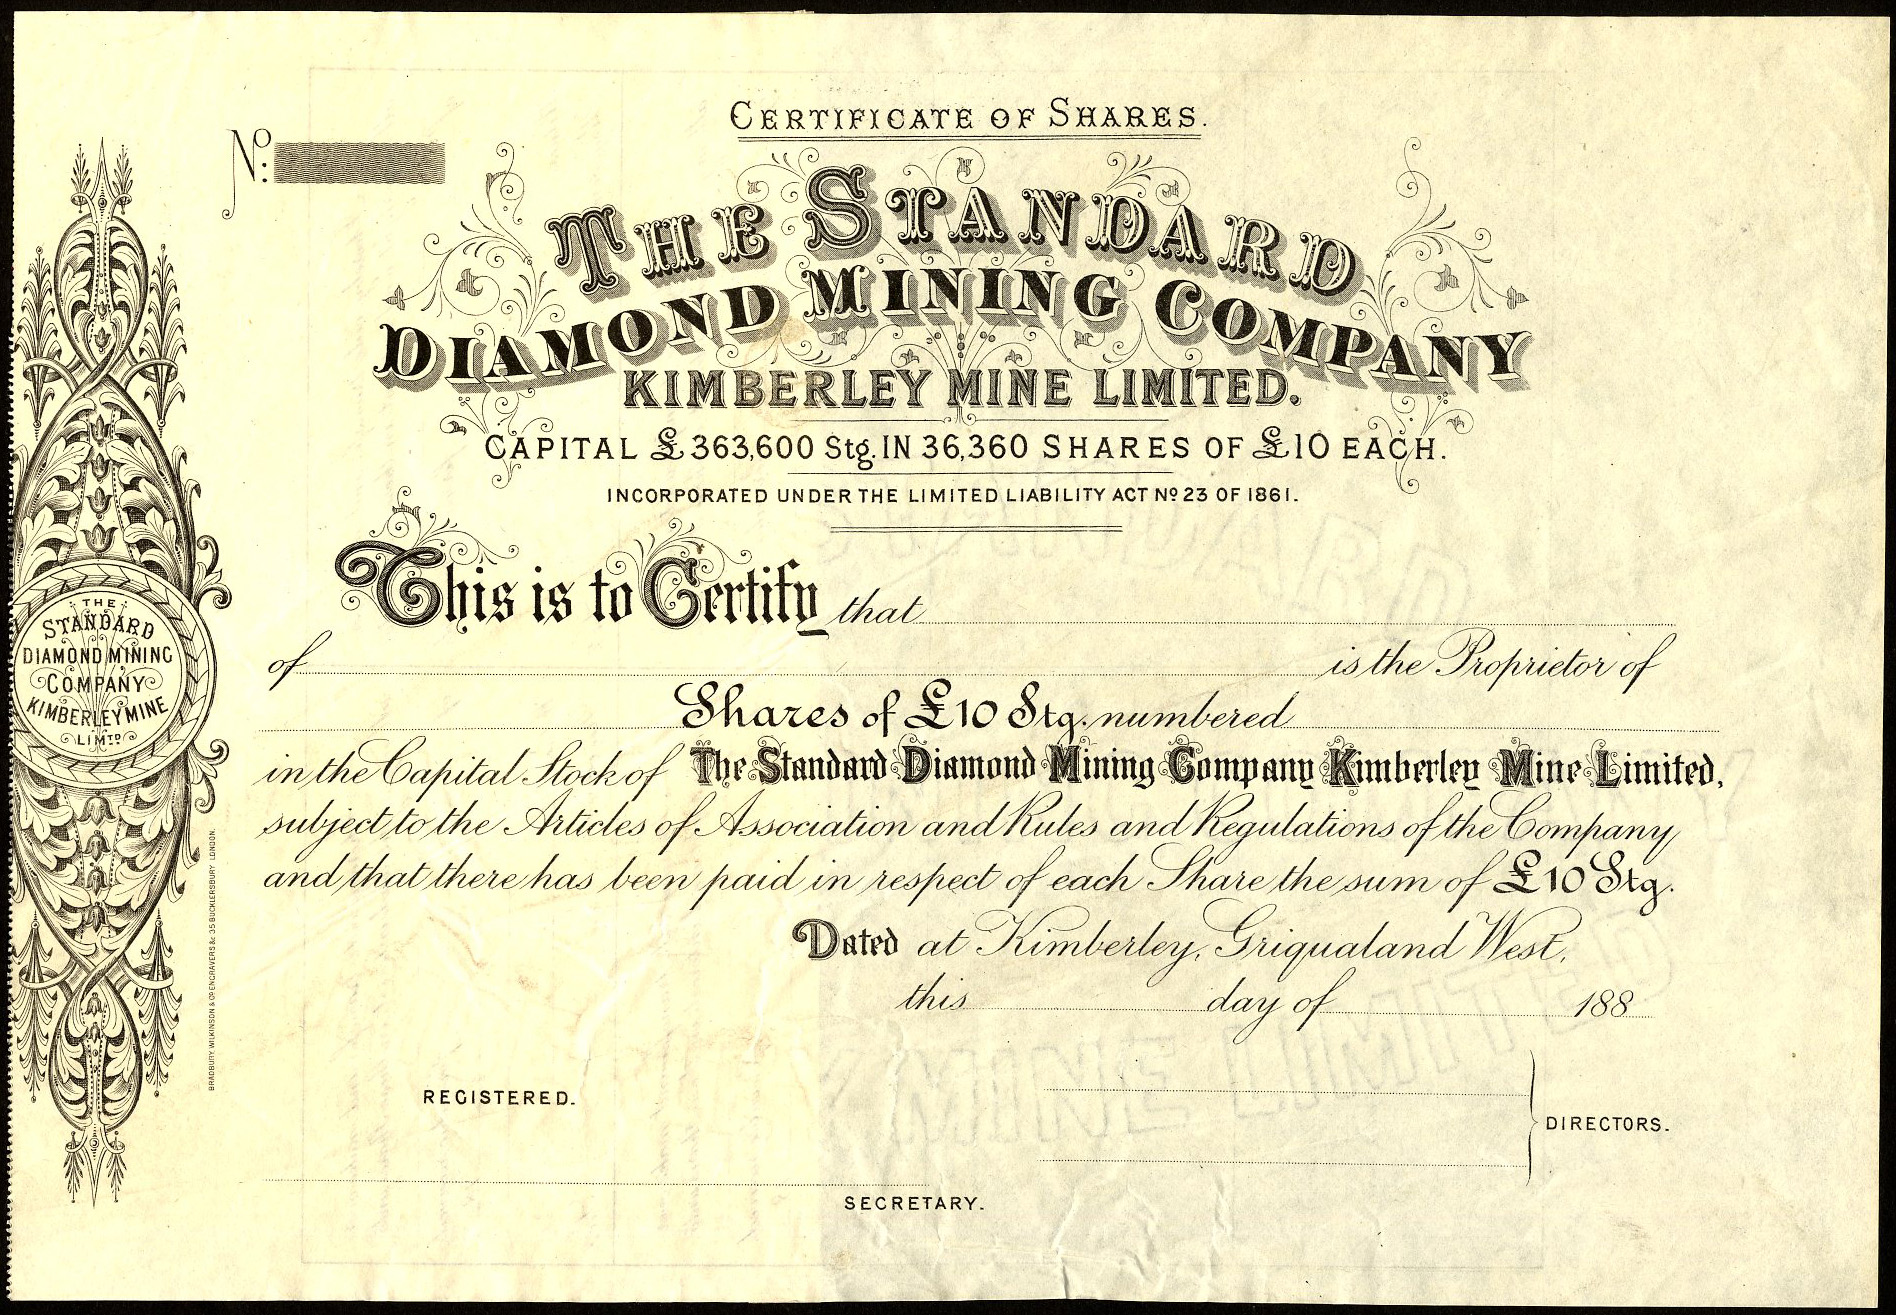 CERTIFICATE OF SHARES.
No:
THE STANDARD
DIAMOND MINING COMPANY
KIMBERLEY MINE LIMITED.
CAPITAL £363,600 Stg. IN 36,360 SHARES OF £10 EACH.
INCORPORATED UNDER THE LIMITED LIABILITY ACT No 23 OF 1861.
This is to Certify that
of is the Proprietor of
Shares of £10 Stg. numbered
in the Capital Stock of The Standard Diamond Mining Company Kimberley Mine Limited,
subject to the Articles of Association and Rules and Regulations of the Company
and that there has been paid in respect of each Share the sum of £10 Stg.
Dated at Kimberley, Griqualand West,
this day of 188
REGISTERED.
DIRECTORS.
SECRETARY.
THE
STANDARD
DIAMOND MINING
COMPANY
KIMBERLEY MINE
LIMTD
BRADBURY WILKINSON & CO ENGRAVERS &c 35 BUCKLERSBURY LONDON.